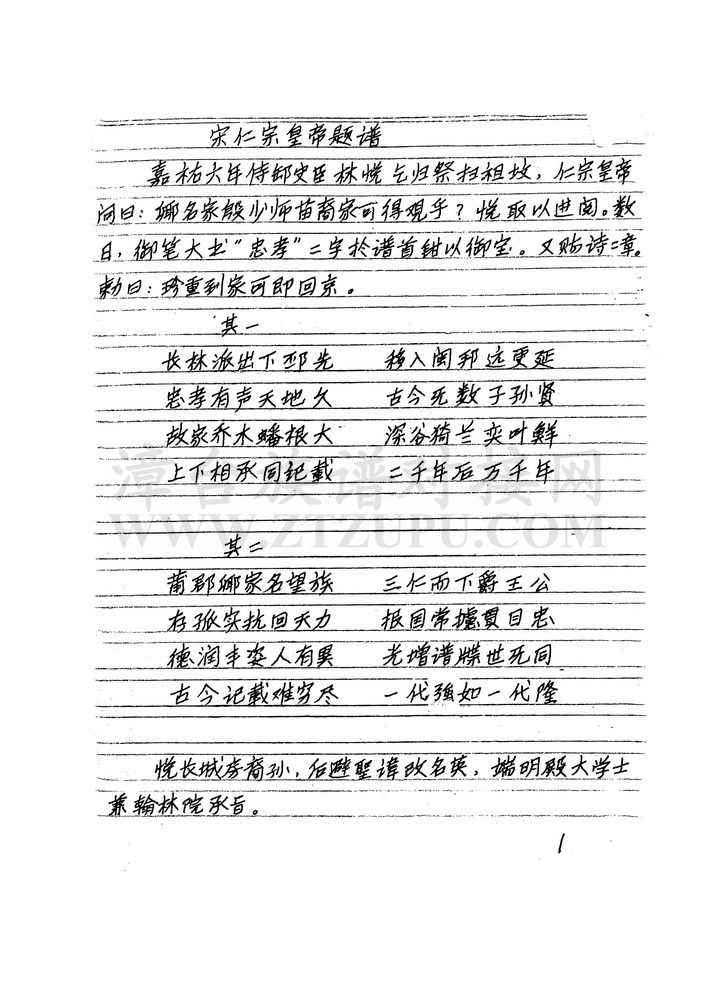 宋仁宗皇帝题谱
嘉祐六年侍御史臣林悦乞归祭扫祖坟，仁宗皇帝
问曰：卿名家殷少师苗裔家可得观乎？悦取以进阅。数
日，御笔大书“忠孝”二字於谱首钳以御宝。又贻诗二章。
勅曰：珍重到家可即回京。
其一
长林派出下邳先 移入闽邦远更延
忠孝有声天地久 古今无数子孙贤
故家乔木蟠根大 深谷猗兰奕叶鲜
上下相承同记载 二千年后万千年
其二
莆郡卿家名望族 三仁而下爵王公
存孤实抗回天力 报国常摅贯日忠
德润丰姿人有異 光增谱牒世无同
古今记载难穷尽 一代強如一代隆
悦长城房裔孙，后避聖諱改名英，端明殿大学士
兼翰林院承旨。
1
漳台族谱对接网
WWW.ZTZUPU.COM